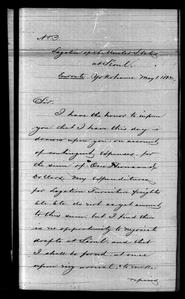 No 2.
Legation of the United States
at Seoul.
Yokohama May 1, 188
Sir:
I have the honor to inform
you that I have this day
drawn upon you on account
of contingent expenses, for
the sum of One Thousand
Dollars. My expenditures
for Legation Furniture freights
etc. etc. do not as yet amount
to this sum but I find there
is no opportunity to negotiate
drafts at Seoul, and that
I shall be forced at once
upon my arrival, to make